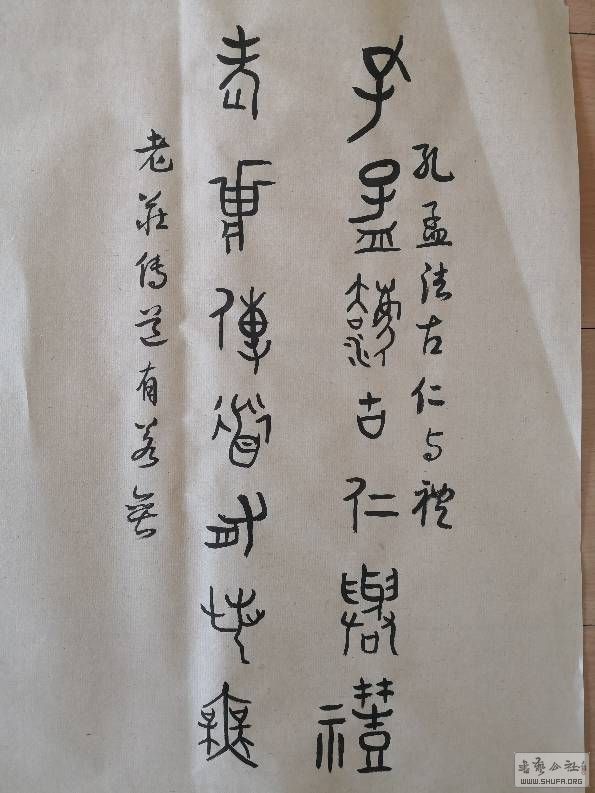 孔孟灋古仁與禮
孔孟法古仁与礼
老莊傳道有若無
老莊傳道有若無
書藝公社
WWW.SHUFA.ORG